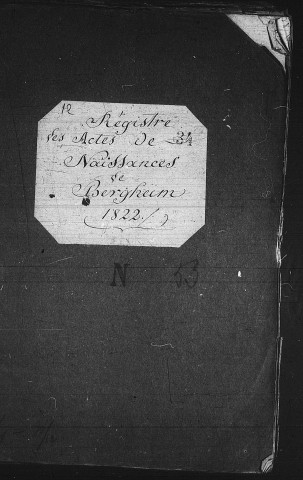 12
Régistre
des Actes de 34
Naissances
de
Bergheim
1822./.
N 53